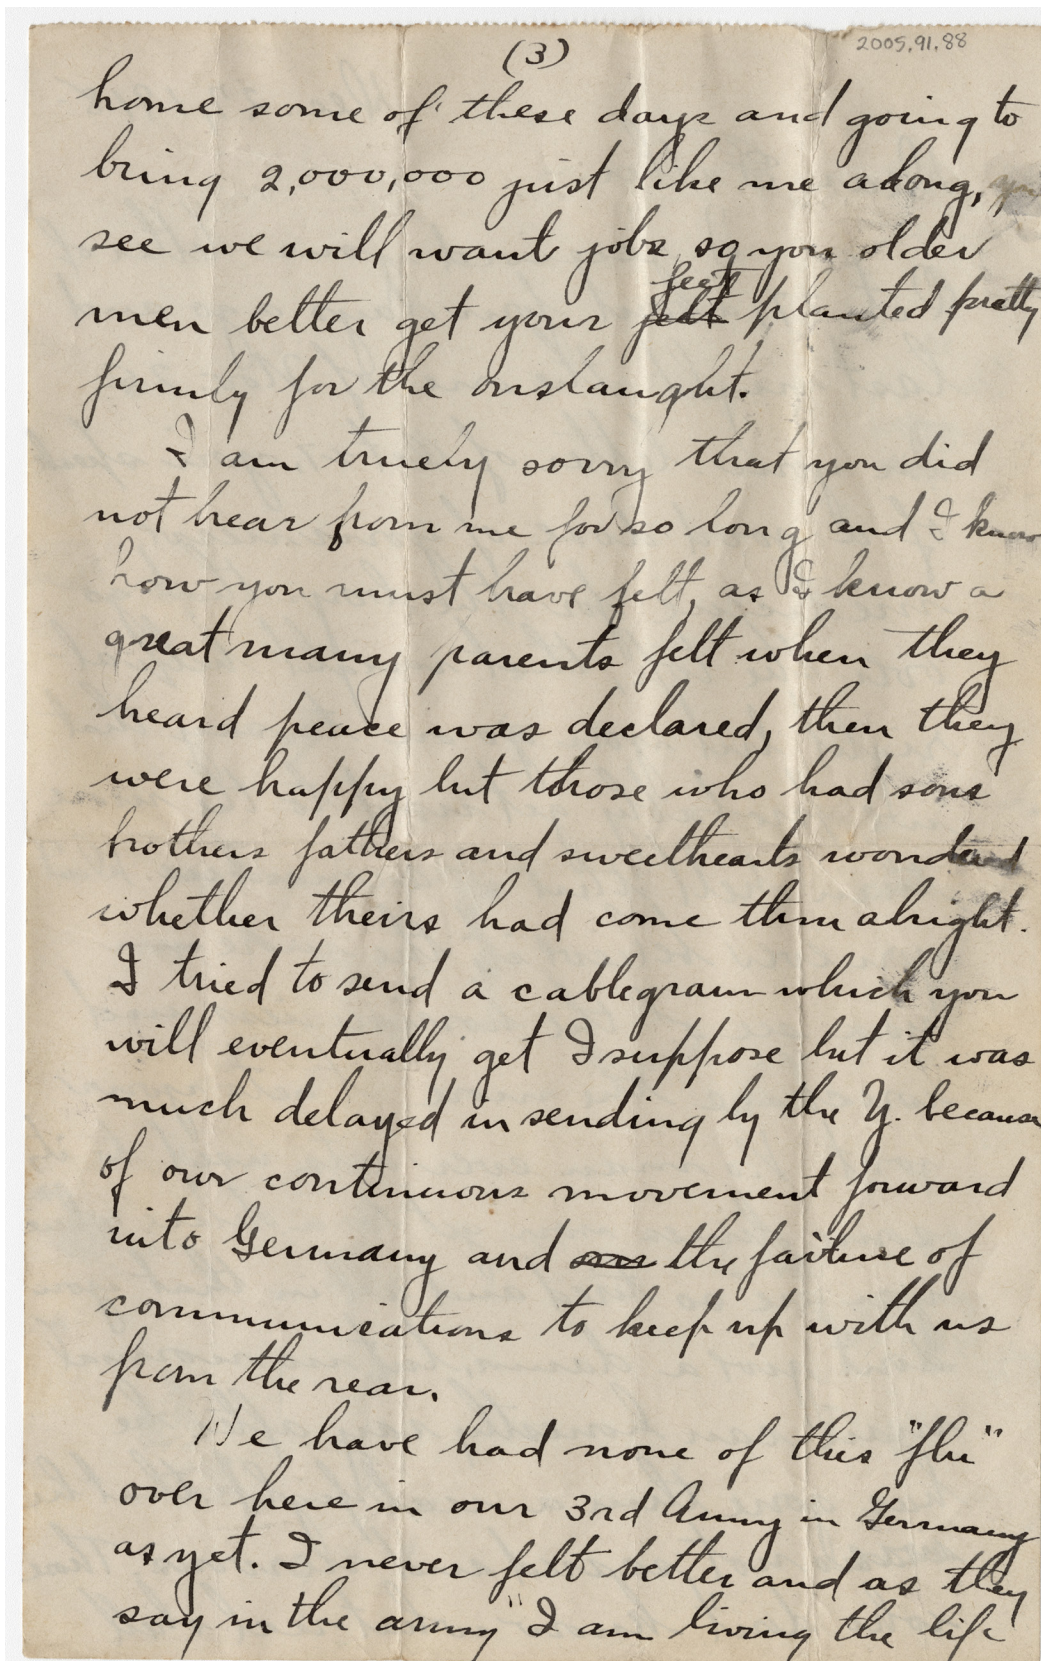 (3)
2005.91.88
home some of these days and going to
bring 2,000,000 just like me along, you
see we will want jobs so you older
feet
men better get your felt planted pretty
firmly for the onslaught.
I am truely sorry that you did
not hear from me for so long and I know
how you must have felt, as I know a
great many parents felt when they
heard peace was declared, then they
were happy but those who had sons
brothers fathers and sweethearts wonderd
whether theirs had come thru alright.
I tried to send a cablegram which you
will eventually get I suppose but it was
much delayed in sending by the Y. because
of our continuous movement forward
into Germany and the failure of
communications to keep up with us
from the rear.
We have had none of this "flu"
over here in our 3rd Army in Germany
as yet. I never felt better and as they
say in the army "I am living the life